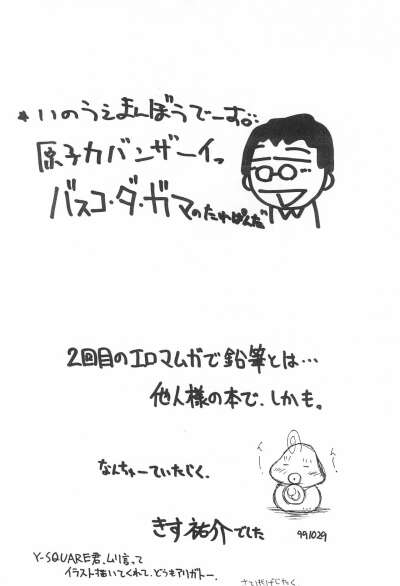 *いのうえまんぼうでーす。
原子力バンザーイっ
バスコ・ダ・ガマのたれぱんだ
2回目のエロマムガで鉛筆とは…
他人様の本で、しかも。
なんちゅーていたじく。
んー
んー
きす祐介でした
991029
Y-SQUARE君、ムリ言って
イラスト描いてくれて、どうもアリガトー。